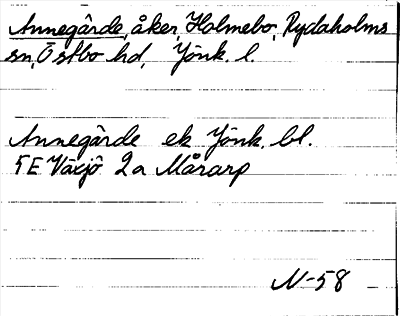 Annegårde, åker, Holmebo, Rydaholms
sn, Östbo hd, Jönk. l.
Annegårde ek Jönk. bl.
5E Växjö 2a Mårarp
N-58